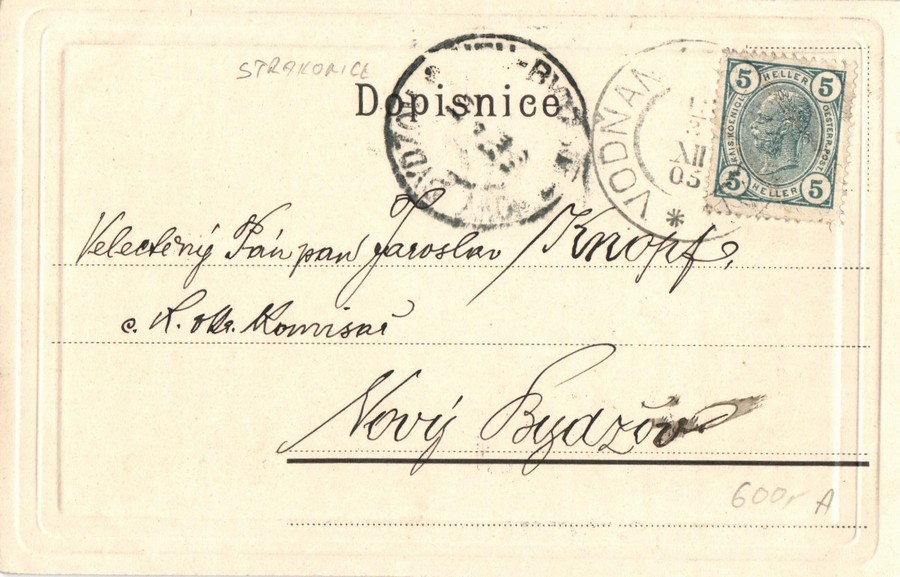 STRAKONICE
Dopisnice
VODŇAN
XII
05
*
5 HELLER 5
KAIS. KOENIGL. OESTERR. POST
5 HELLER 5
BYDŽOV
Velectěný Pán pan Jaroslav Knopf,
c. k. okr. Komisař
Nový Bydžov
600,- A